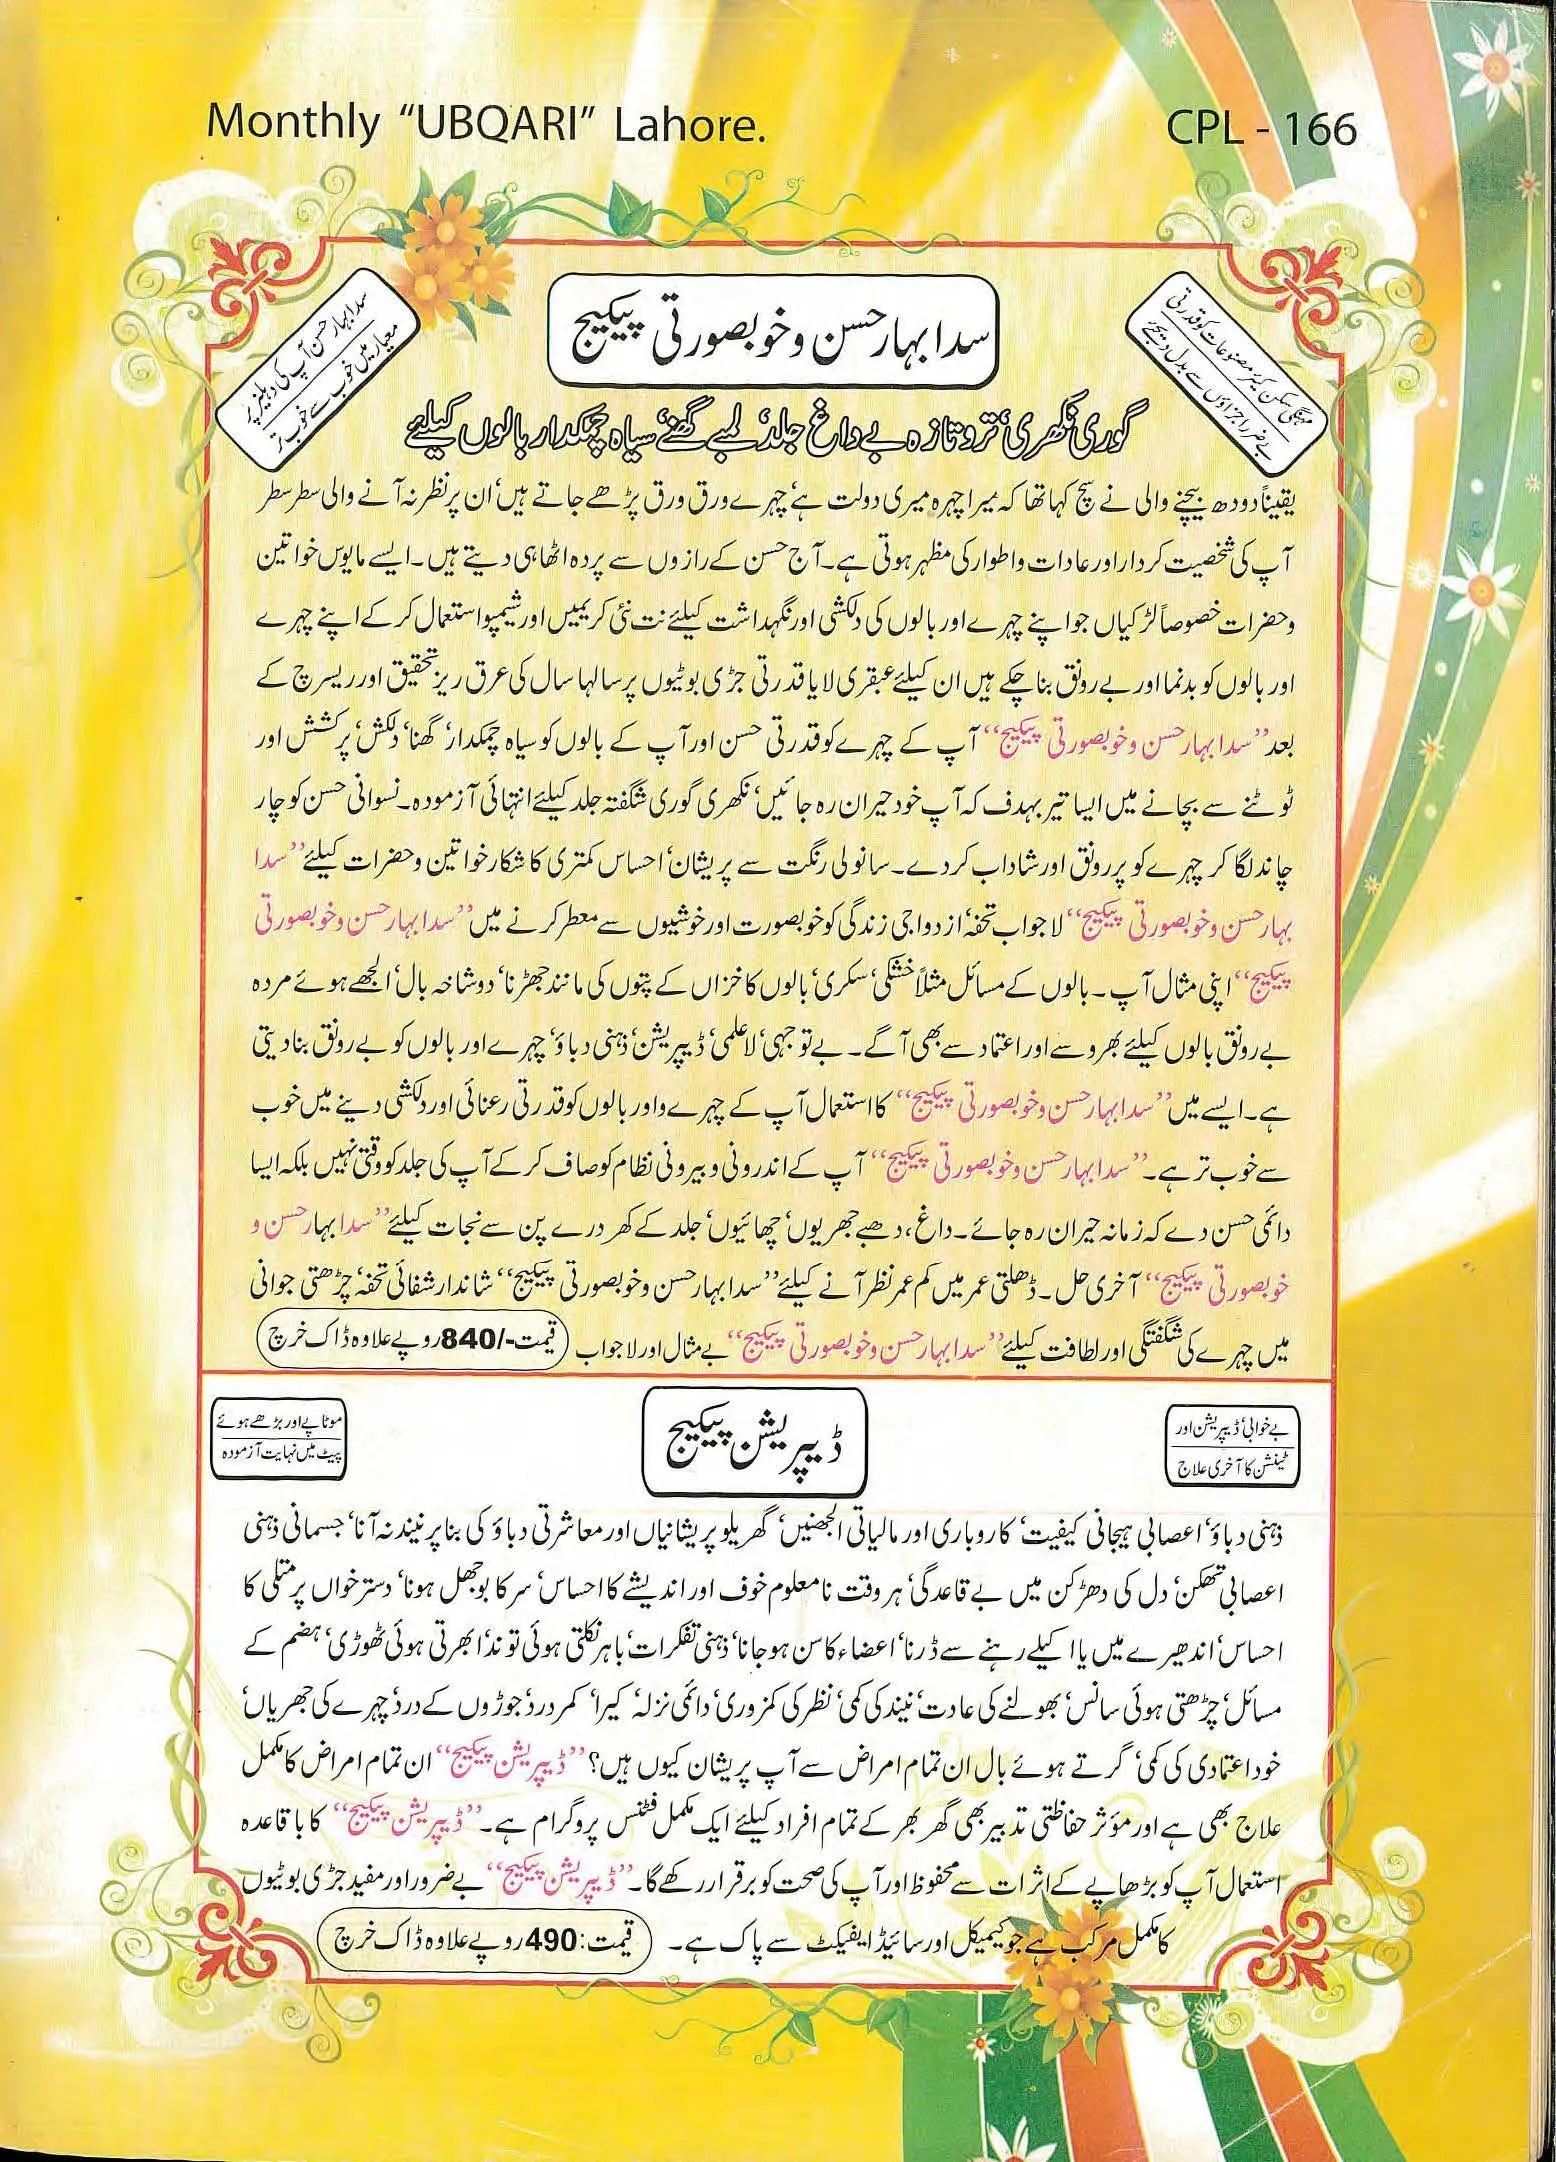 Monthly “UBQARI” Lahore.
CPL - 166
سدابہار حسن و خوبصورتی پیکیج
سدابہار حسن آپ کی دہلیز پر
معیار میں خوب سے خوب تر
مہنگی سکن کیئر مصنوعات کو قدرتی
بے ضرر اجزاؤں سے بدل دیجئے
گوری نکھری‘ تروتازہ بے داغ جلد‘ لمبے گھنے‘ سیاہ چمکدار بالوں کیلئے
یقیناً دودھ بیچنے والی نے سچ کہا تھا کہ میرا چہرہ میری دولت ہے‘ چہرے ورق ورق پڑھے جاتے ہیں‘ ان پر نظر نہ آنے والی سطر سطر
آپ کی شخصیت کردار اور عادات و اطوار کی مظہر ہوتی ہے۔ آج حسن کے رازوں سے پردہ اٹھا ہی دیتے ہیں۔ ایسے مایوس خواتین
و حضرات خصوصاً لڑکیاں جو اپنے چہرے اور بالوں کی دلکشی اور نگہداشت کیلئے نت نئی کریمیں اور شیمپو استعمال کر کے اپنے چہرے
اور بالوں کو بدنما اور بے رونق بنا چکے ہیں ان کیلئے عبقری لایا قدرتی جڑی بوٹیوں پر سالہا سال کی عرق ریز تحقیق اور ریسرچ کے
بعد ’’سدابہار حسن و خوبصورتی پیکیج‘‘ آپ کے چہرے کو قدرتی حسن اور آپ کے بالوں کو سیاہ چمکدار‘ گھنا‘ دلکش‘ پرکشش اور
ٹوٹنے سے بچانے میں ایسا تیر بہدف کہ آپ خود حیران رہ جائیں‘ نکھری گوری شگفتہ جلد کیلئے انتہائی آزمودہ۔ نسوانی حسن کو چار
چاند لگا کر چہرے کو پررونق اور شاداب کر دے۔ سانولی رنگت سے پریشان‘ احساس کمتری کا شکار خواتین و حضرات کیلئے ’’سدا
بہار حسن و خوبصورتی پیکیج‘‘ لاجواب تحفہ‘ ازدواجی زندگی کو خوبصورت اور خوشیوں سے معطر کرنے میں ’’سدابہار حسن و خوبصورتی
پیکیج‘‘ اپنی مثال آپ۔ بالوں کے مسائل مثلاً خشکی‘ سکری‘ بالوں کا خزاں کے پتوں کی مانند جھڑنا‘ دو شاخہ بال‘ الجھے ہوئے مردہ
بے رونق بالوں کیلئے بھروسے اور اعتماد سے بھی آگے۔ بے توجہی‘ لاعلمی‘ ڈیپریشن‘ ذہنی دباؤ‘ چہرے اور بالوں کو بے رونق بنا دیتی
ہے۔ ایسے میں ’’سدابہار حسن و خوبصورتی پیکیج‘‘ کا استعمال آپ کے چہرے و اور بالوں کو قدرتی رعنائی اور دلکشی دینے میں خوب
سے خوب تر ہے۔ ’’سدابہار حسن و خوبصورتی پیکیج‘‘ آپ کے اندرونی و بیرونی نظام کو صاف کر کے آپ کی جلد کو وقتی نہیں بلکہ ایسا
دائمی حسن دے کہ زمانہ حیران رہ جائے۔ داغ، دھبے جھریوں‘ چھائیوں‘ جلد کے کھردرے پن سے نجات کیلئے ’’سدابہار حسن و
خوبصورتی پیکیج‘‘ آخری حل۔ ڈھلتی عمر میں کم عمر نظر آنے کیلئے ’’سدابہار حسن و خوبصورتی پیکیج‘‘ شاندار شفائی تحفہ‘ چڑھتی جوانی
میں چہرے کی شگفتگی اور لطافت کیلئے ’’سدابہار حسن و خوبصورتی پیکیج‘‘ بے مثال اور لاجواب
قیمت -/840 روپے علاوہ ڈاک خرچ
ڈیپریشن پیکیج
بے خوابی‘ ڈیپریشن اور
ٹینشن کا آخری علاج
موٹاپے اور بڑھے ہوئے
پیٹ میں نہایت آزمودہ
ذہنی دباؤ‘ اعصابی ہیجانی کیفیت‘ کاروباری اور مالیاتی الجھنیں‘ گھریلو پریشانیاں اور معاشرتی دباؤ کی بنا پر نیند نہ آنا‘ جسمانی ذہنی
اعصابی تھکن‘ دل کی دھڑکن میں بے قاعدگی‘ ہر وقت نامعلوم خوف اور اندیشے کا احساس‘ سر کا بوجھل ہونا‘ دسترخواں پر متلی کا
احساس‘ اندھیرے میں یا اکیلے رہنے سے ڈرنا‘ اعضاء کا سن ہو جانا‘ ذہنی تفکرات‘ باہر نکلتی ہوئی توند‘ ابھرتی ہوئی ٹھوڑی‘ ہضم کے
مسائل‘ چڑھتی ہوئی سانس‘ بھولنے کی عادت‘ نیند کی کمی‘ نظر کی کمزوری‘ دائمی نزلہ‘ کیرا‘ کمر درد‘ جوڑوں کے درد‘ چہرے کی جھریاں‘
خود اعتمادی کی کمی‘ گرتے ہوئے بال ان تمام امراض سے آپ پریشان کیوں ہیں؟ ’’ڈیپریشن پیکیج‘‘ ان تمام امراض کا مکمل
علاج بھی ہے اور مؤثر حفاظتی تدبیر بھی گھر بھر کے تمام افراد کیلئے ایک مکمل فٹنس پروگرام ہے۔ ’’ڈیپریشن پیکیج‘‘ کا باقاعدہ
استعمال آپ کو بڑھاپے کے اثرات سے محفوظ اور آپ کی صحت کو برقرار رکھے گا۔ ’’ڈیپریشن پیکیج‘‘ بے ضرور اور مفید جڑی بوٹیوں
کا مکمل مرکب ہے جو کیمیکل اور سائیڈ ایفیکٹ سے پاک ہے۔
قیمت: 490 روپے علاوہ ڈاک خرچ